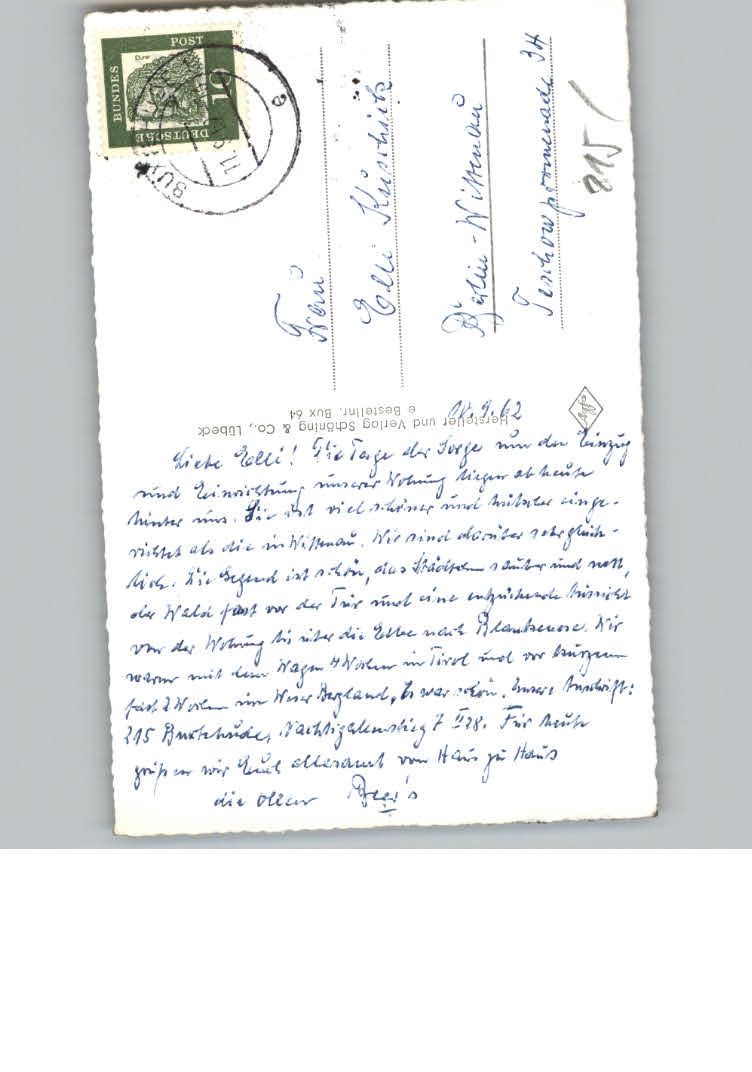 DEUTSCHE
BUNDES
POST
10
Dürer
BUXTEHUDE
a
Frau
Elli Küschick
Berlin-Wittenau
Teschowpromenade 34
215
Hersteller und Verlag Schöning & Co., Lübeck
e Bestellnr. Bux 64
10.9.62
Liebe Elli! Die Tage der Sorge um den Einzug
und Einrichtung unserer Wohnung liegen ab heute
hinter uns. Sie ist viel schöner und hübscher einge-
richtet als die in Wittenau. Wir sind darüber sehr glück-
lich. Die Gegend ist schön, das Städtchen sauber und nett,
der Wald fast vor der Tür und eine entzückende Aussicht
von der Wohnung bis über die Elbe nach Blankenese. Wir
waren mit dem Wagen 4 Wochen in Tirol und vor kurzem
fast 2 Wochen im Weser Bergland, es war schön. Unsere Anschrift:
215 Buxtehude, Nachtigalensteig 7 II 28. Für heute
grüßen wir Euch allesamt von Haus zu Haus
die ollen Beer's